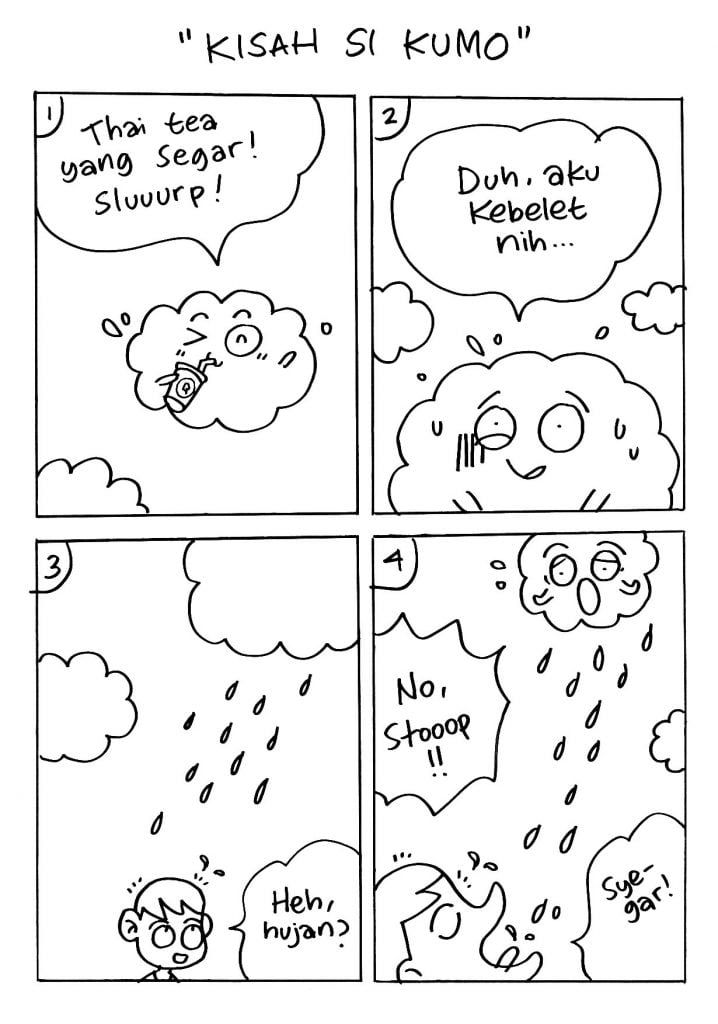 "KISAH SI KUMO"
1
Thai tea
yang segar!
Sluuurp!
2
Duh, aku
Kebelet
nih...
3
Heh,
hujan?
4
No,
Stooop
!!
Sye-
gar!